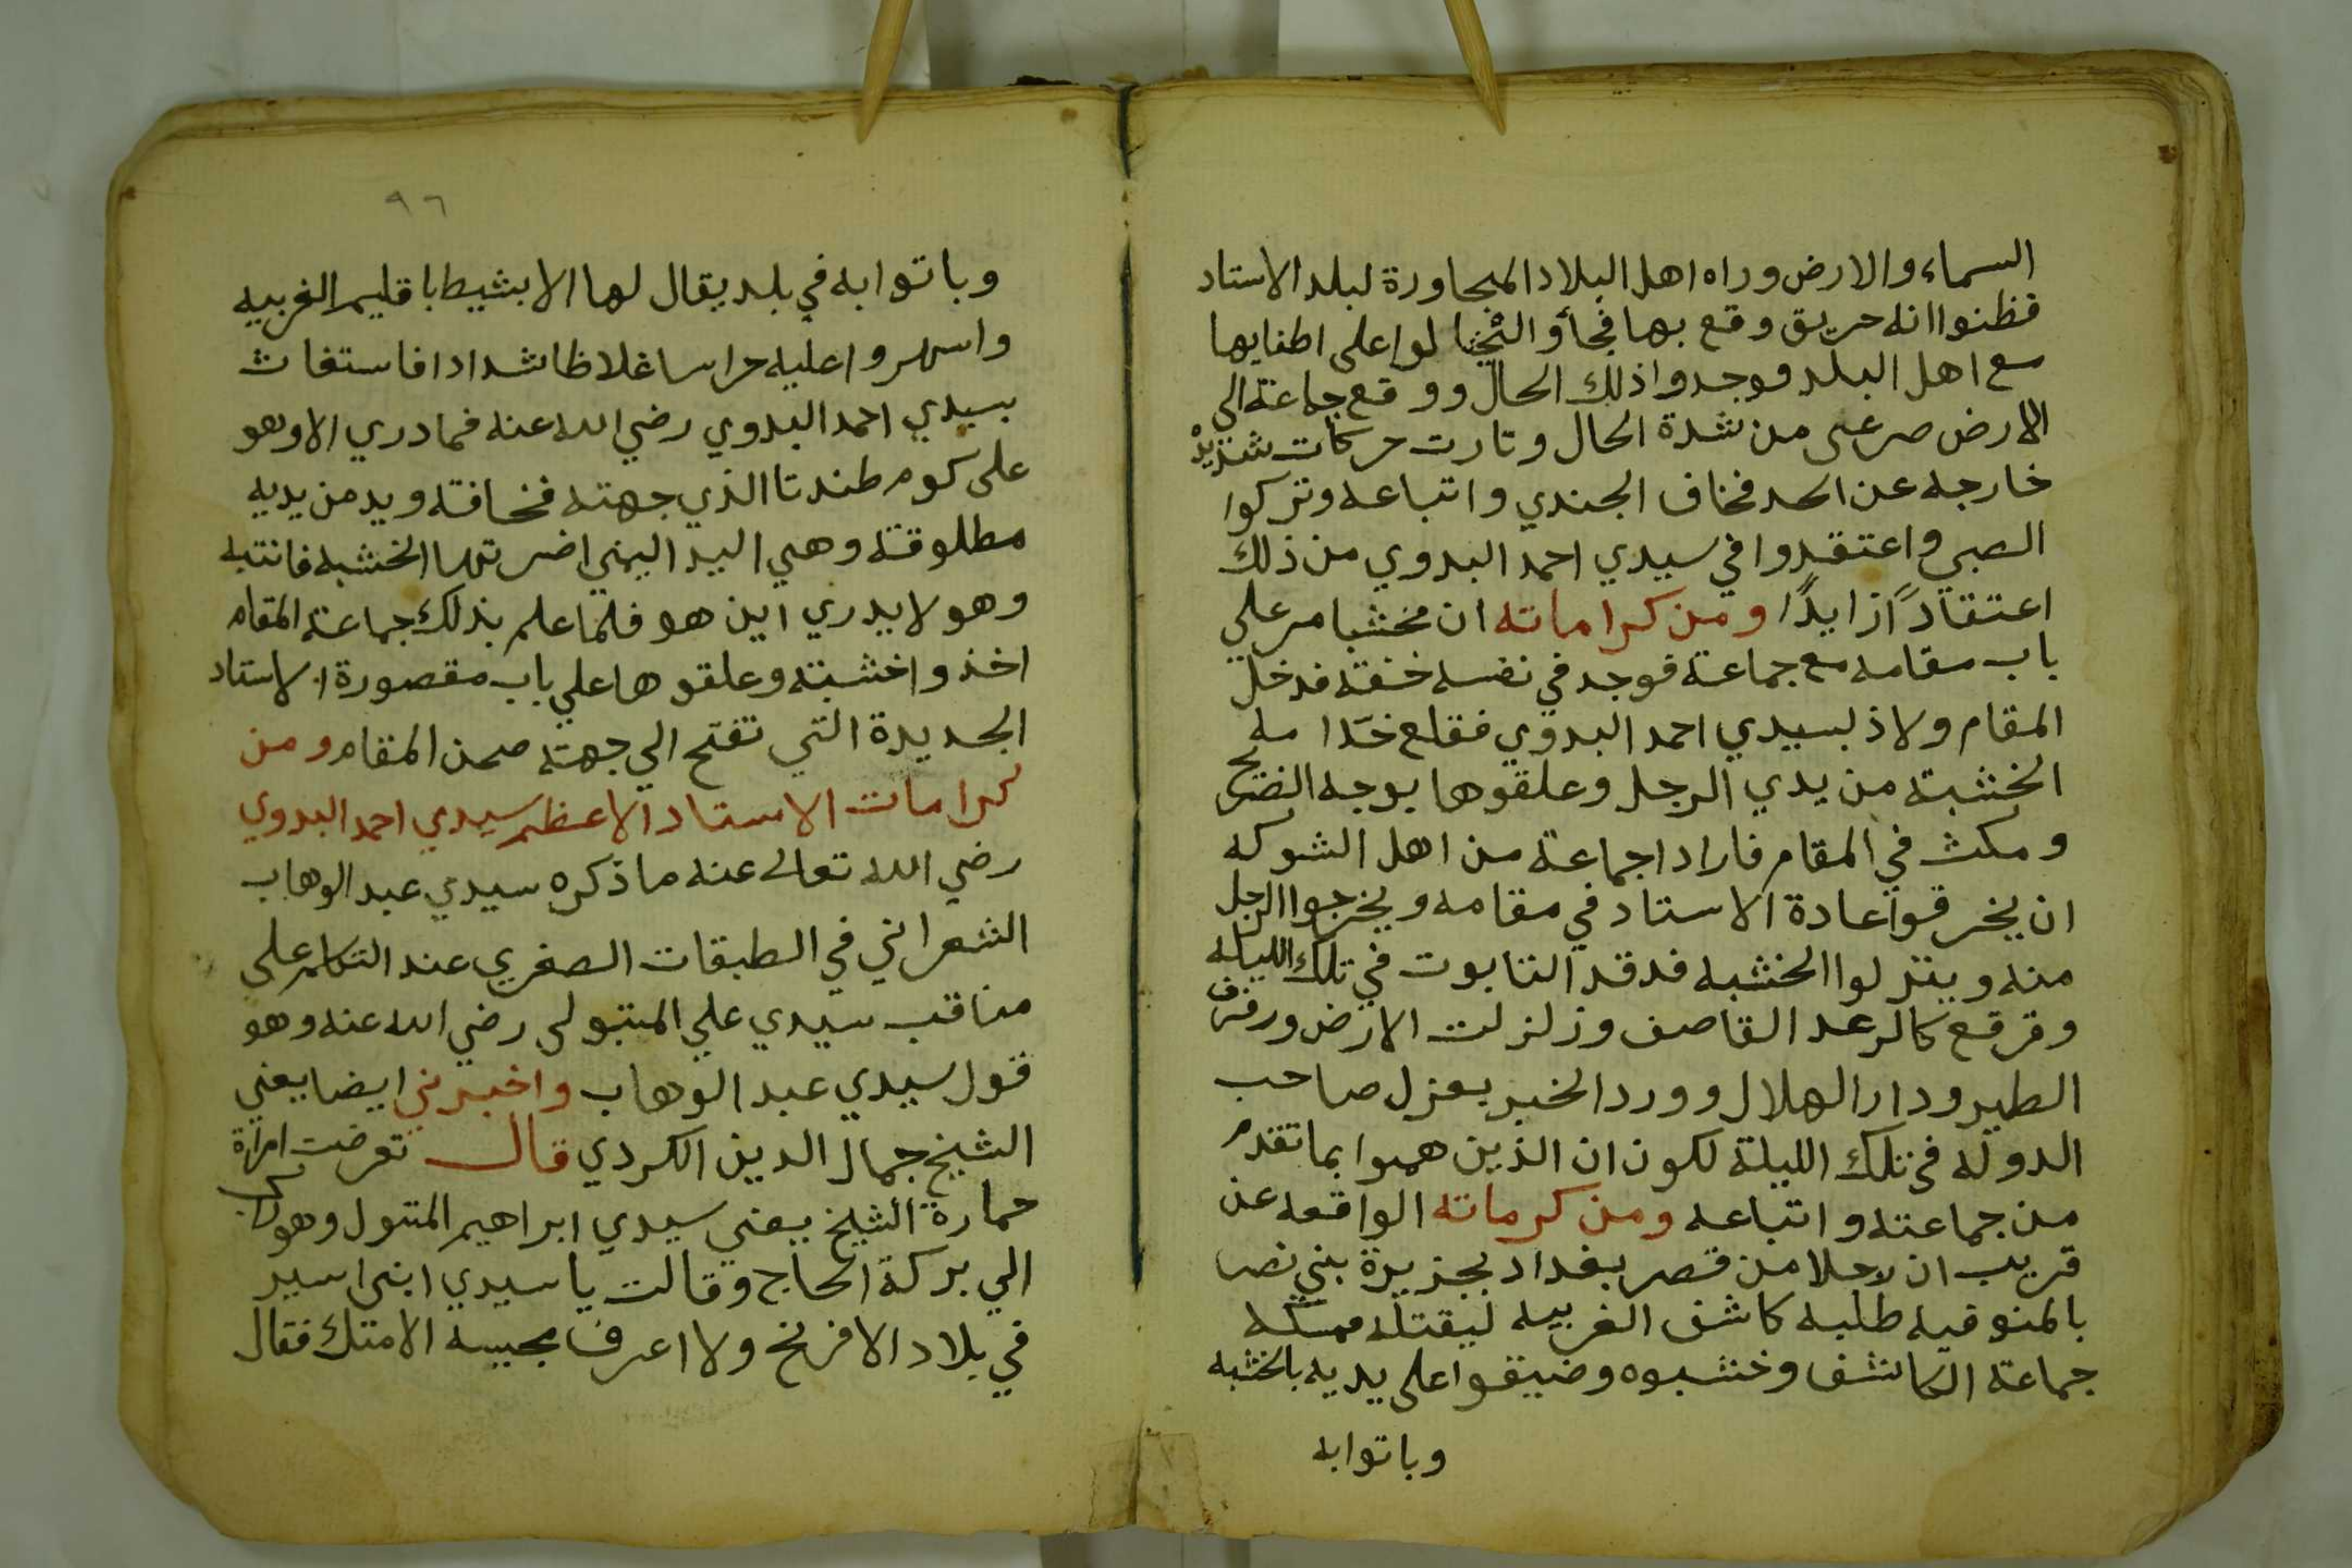 السماء والارض وراه اهل البلاد المجاورة لبلد الاستاد
فظنوا انه حريق وقع بها فجأو لوا على اطفايها
مع اهل البلد فوجدوا ذلك الحال ووقع جماعة الى
الارض صرعى من شدة الحال وثارت حركات شديدة
خارجه عن الحد فخاف الجندي واتباعه وتركوا
الصبي واعتقدوا في سيدي احمد البدوي من ذلك
اعتقاداً زايدًا ومن كراماته ان مخشبا مر علي
باب مقامه مع جماعة فوجد في نفسه خفة فدخل
المقام ولاذ بسيدي احمد البدوي فقلع خدامه
الخشبة من يدي الرجل وعلقوها بوجه الضريح
ومكث في المقام فاراد اجماعة من اهل الشوكه
ان يخرقوا عادة الاستاد في مقامه ويخرجوا الرجل
منه وينزلوا الخشبه فدقد التابوت في تلك الليله
وقرقع كالرعد القاصف وزلزلت الارض ورفرف
الطير ودار الهلال وورد الخبر بعزل صاحب
الدوله في تلك الليلة لكون ان الذين هموا بما تقدم
من جماعته واتباعه ومن كرماته الواقعه عن
قريب ان رجلا من قصر بغداد بجزيرة بني نصر
بالمنوفيه طلبه كاشف الغربيه ليقتله فمسكه
جماعة الكاشف وخشبوه وضيقوا على يديه بالخشبه
وباتوابه
٩٦
وباتوا به في بلد يقال لها الابشيط باقليم الغربيه
واسهروا عليه حراسا غلاظا شدادا فاستغاث
بسيدي احمد البدوي رضي الله عنه فما دري الا وهو
على كوم طندتا الذي جهته فخافته ويد من يديه
مطلوقة وهي اليد اليمني اضرتها الخشبه فانتبه
وهو لا يدري اين هو فلما علم بذلك جماعة المقام
اخذوا خشبته وعلقوها علي باب مقصورة الاستاد
الجديدة التي تفتح الي جهة صحن المقام ومن
كرامات الاستاد الاعظم سيدي احمد البدوي
رضي الله تعالى عنه ما ذكره سيدي عبد الوهاب
الشعراني في الطبقات الصغري عند التكلم على
مناقب سيدي علي المتبولى رضي الله عنه وهو
قول سيدي عبد الوهاب واخبرني ايضا يعني
الشيخ جمال الدين الكردي قال تعرضت امراة
حمارة الشيخ يعني سيدي ابراهيم المتبول وهو راكب
الي بركة الحاج وقالت يا سيدي ابنى اسير
في بلاد الافرنج ولا اعرف مجيبه الا متك فقال